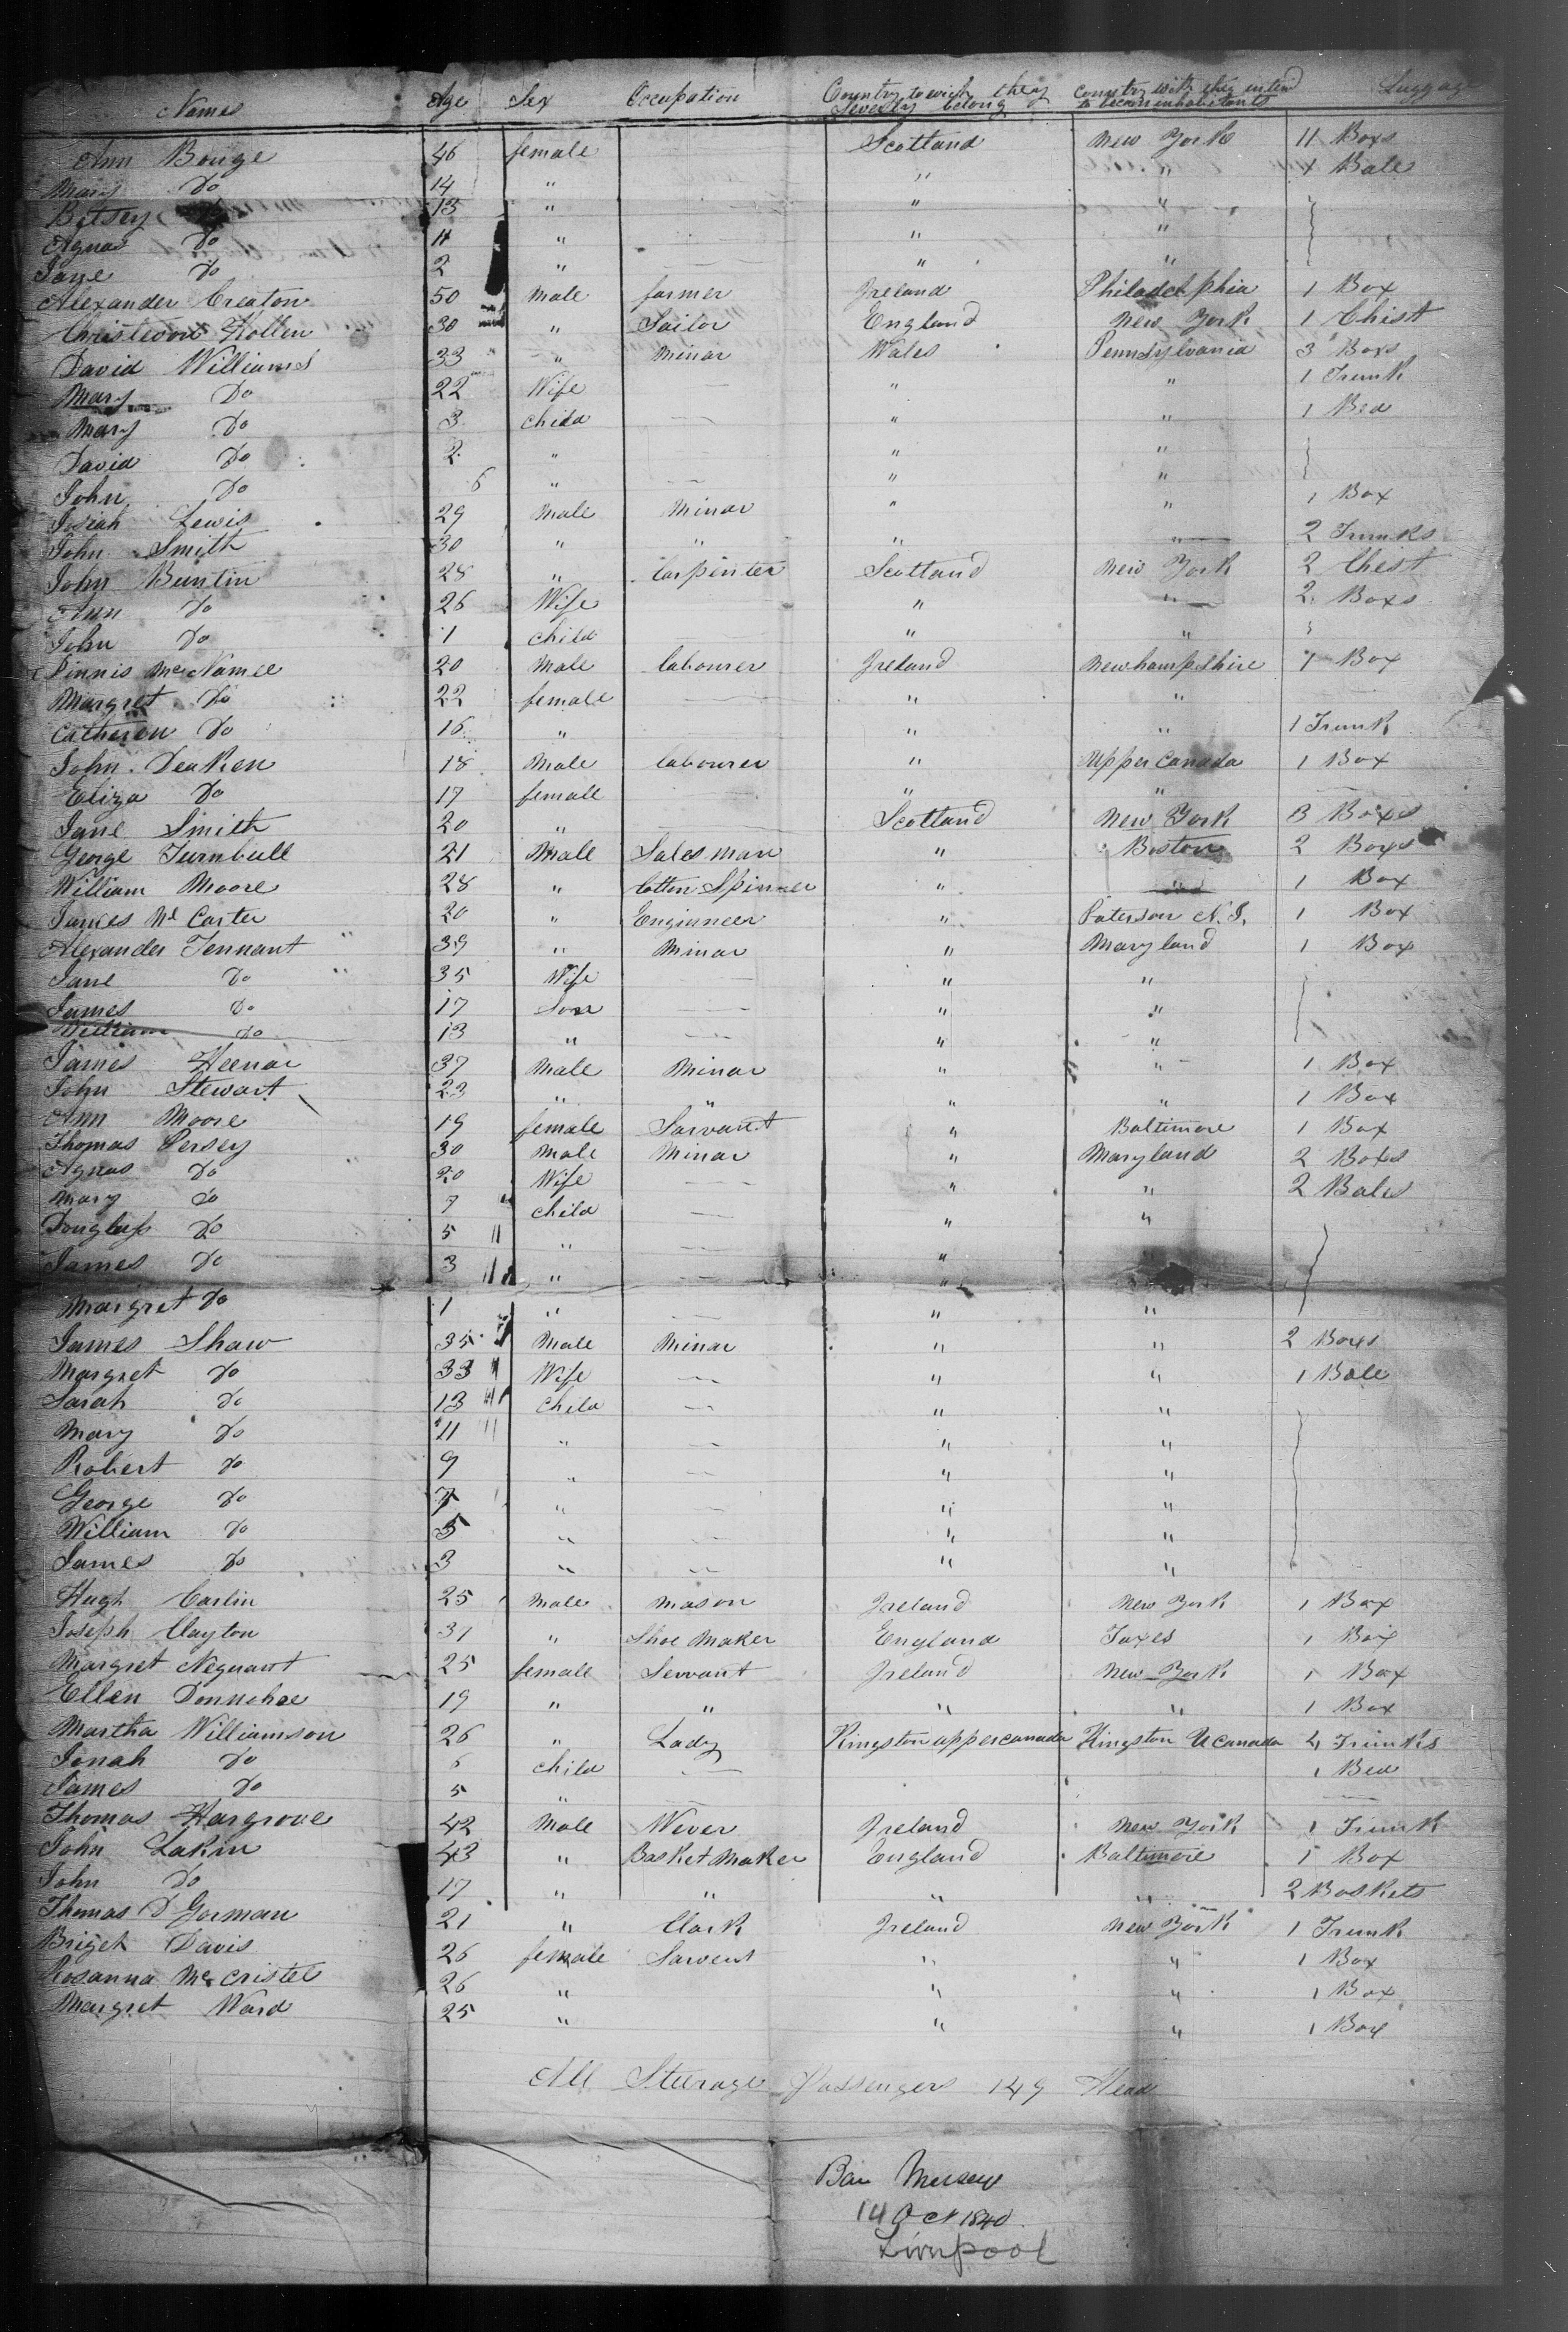 Names Age Sex Occupation Country to wich they Severly belong Country wich they intend to becom inhabetants Luggag
Ann Bouge 46 female Scotland New York 11 Boxs
Mary Do 14 " " " 4 Bale
Betsey Do 13 " " "
Agnas Do 11 " " "
Jane Do 2 " " "
Alexander Creaton 50 Male farmer Ireland Philadelphia 1 Box
Hollen 30 " Sailor England New York 1 Chist
David Williams 33 " Minar Wales Pennsylvania 3 Boxs
Mary Do 22 Wife " " 1 Trunk
Mary Do 3 Child " " 1 Bed
David Do 2 " " "
John Do 6 " " "
Josiah Lewis 29 Male Minar " " 1 Box
John Smith 30 " " " " 2 Trunks
John Buntin 28 " Carpinter Scotland New York 2 Chist
Ann Do 26 Wife " " 2 Boxs
John Do 1 Child " "
Dinnis McNamee 20 Male labourer Ireland Newhampshire 1 Box
Margret Do 22 female " "
Catheren Do 16 " " " 1 Trunk
John Deaken 18 Male labourer " Upper Canada 1 Box
Eliza Do 17 female " "
Jane Smith 20 " Scotland New York 3 Boxes
George Turnbull 21 Male Sales man " Boston 2 Boxes
William Moore 28 " Cotten Spinner " 1 Box
James Mc Carter 20 " Enginneer " Paterson N.J. 1 Box
Alexander Tennant 39 " Minar " Maryland 1 Box
Jane Do 35 Wife " "
James Do 17 Son " "
William Do 13 " " "
James Heenar 37 Male Minar " " 1 Box
John Stewart 23 " " " " 1 Box
Ann Moore 19 female Sarvant " Baltimore 1 Box
Thomas Persey 30 Male Minar " Maryland 2 Boxes
Agnas Do 20 Wife " " 2 Bales
Mary Do 7 Child " "
Douglass Do 5 " "
James Do 3 " "
Margret Do 1 " " "
James Shaw 35 Male Minar " " 2 Boxes
Margret Do 33 Wife " " 1 Bale
Sarah Do 13 Child " "
Mary Do 11 " " "
Robert Do 9 " " "
George Do 7 " " "
William Do 5 " " "
James Do 3 " " "
Hugh Carlin 25 Male Mason Ireland New York 1 Box
Joseph Clayton 37 " Shoe Maker England Taxes 1 Box
Margret Neguant 25 female Servant Ireland New York 1 Box
Ellen Donnehoe 19 " " " " 1 Box
Martha Williamson 26 " Lady Kingston upper canada Kingston U canada 4 Trunks
Jonah Do 6 Child 1 Bed
James Do 5 "
Thomas Hargrove 42 Male Wever Ireland New York 1 Trunk
John Lakin 43 " Basket Maker England Baltimore 1 Box
John Do 17 " " " " 2 Baskets
Thomas D Gorman 21 " Clark Ireland New York 1 Trunk
Briget Davis 26 female Sarvent " " 1 Box
Rosanna Mc Cristel 26 " " " 1 Box
Margret Ward 25 " " " 1 Box
All Steerage Passengers 149 Head
14 Oct 1840
Liverpool